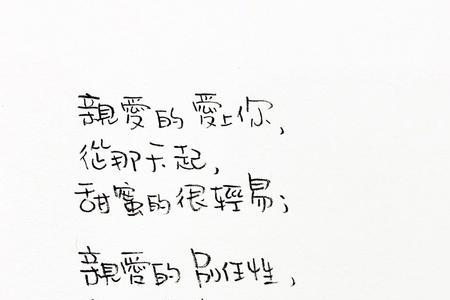 親愛的愛上你，
從那天起，
甜蜜的很輕易；
親愛的別任性，